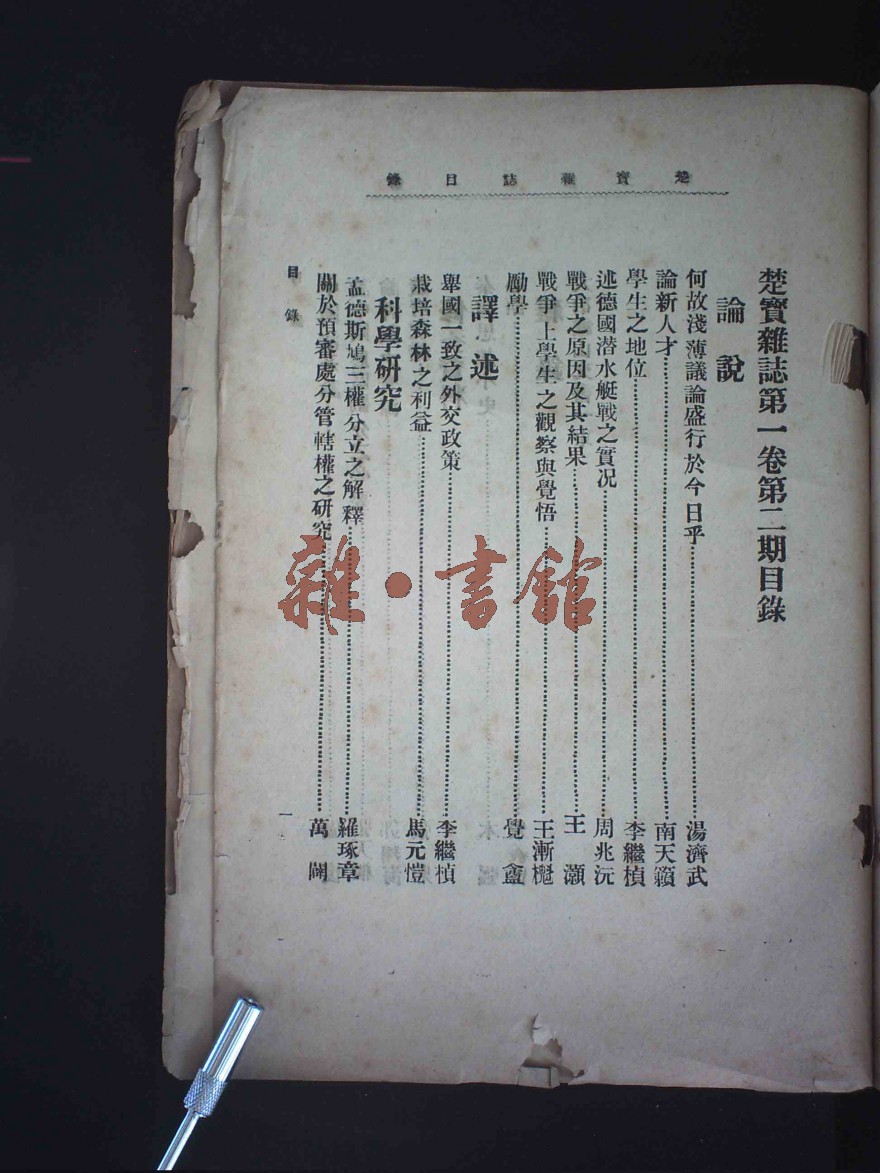 楚寶雜誌目錄
楚寶雜誌第一卷第二期目錄
論說
何故淺薄議論盛行於今日乎 湯濟武
論新人才 南天籟
學生之地位 李繼楨
述德國潛水艇戰之實況 周兆沅
戰爭之原因及其結果 王灝
戰爭上學生之觀察與覺悟 王漸
勵學 覺盦
譯述
舉國一致之外交政策 李繼楨
栽培森林之利益 馬元愷
科學研究
孟德斯鳩三權分立之解釋 羅琢章
關於預審處分管轄權之研究 萬
目錄
一
雜·書館